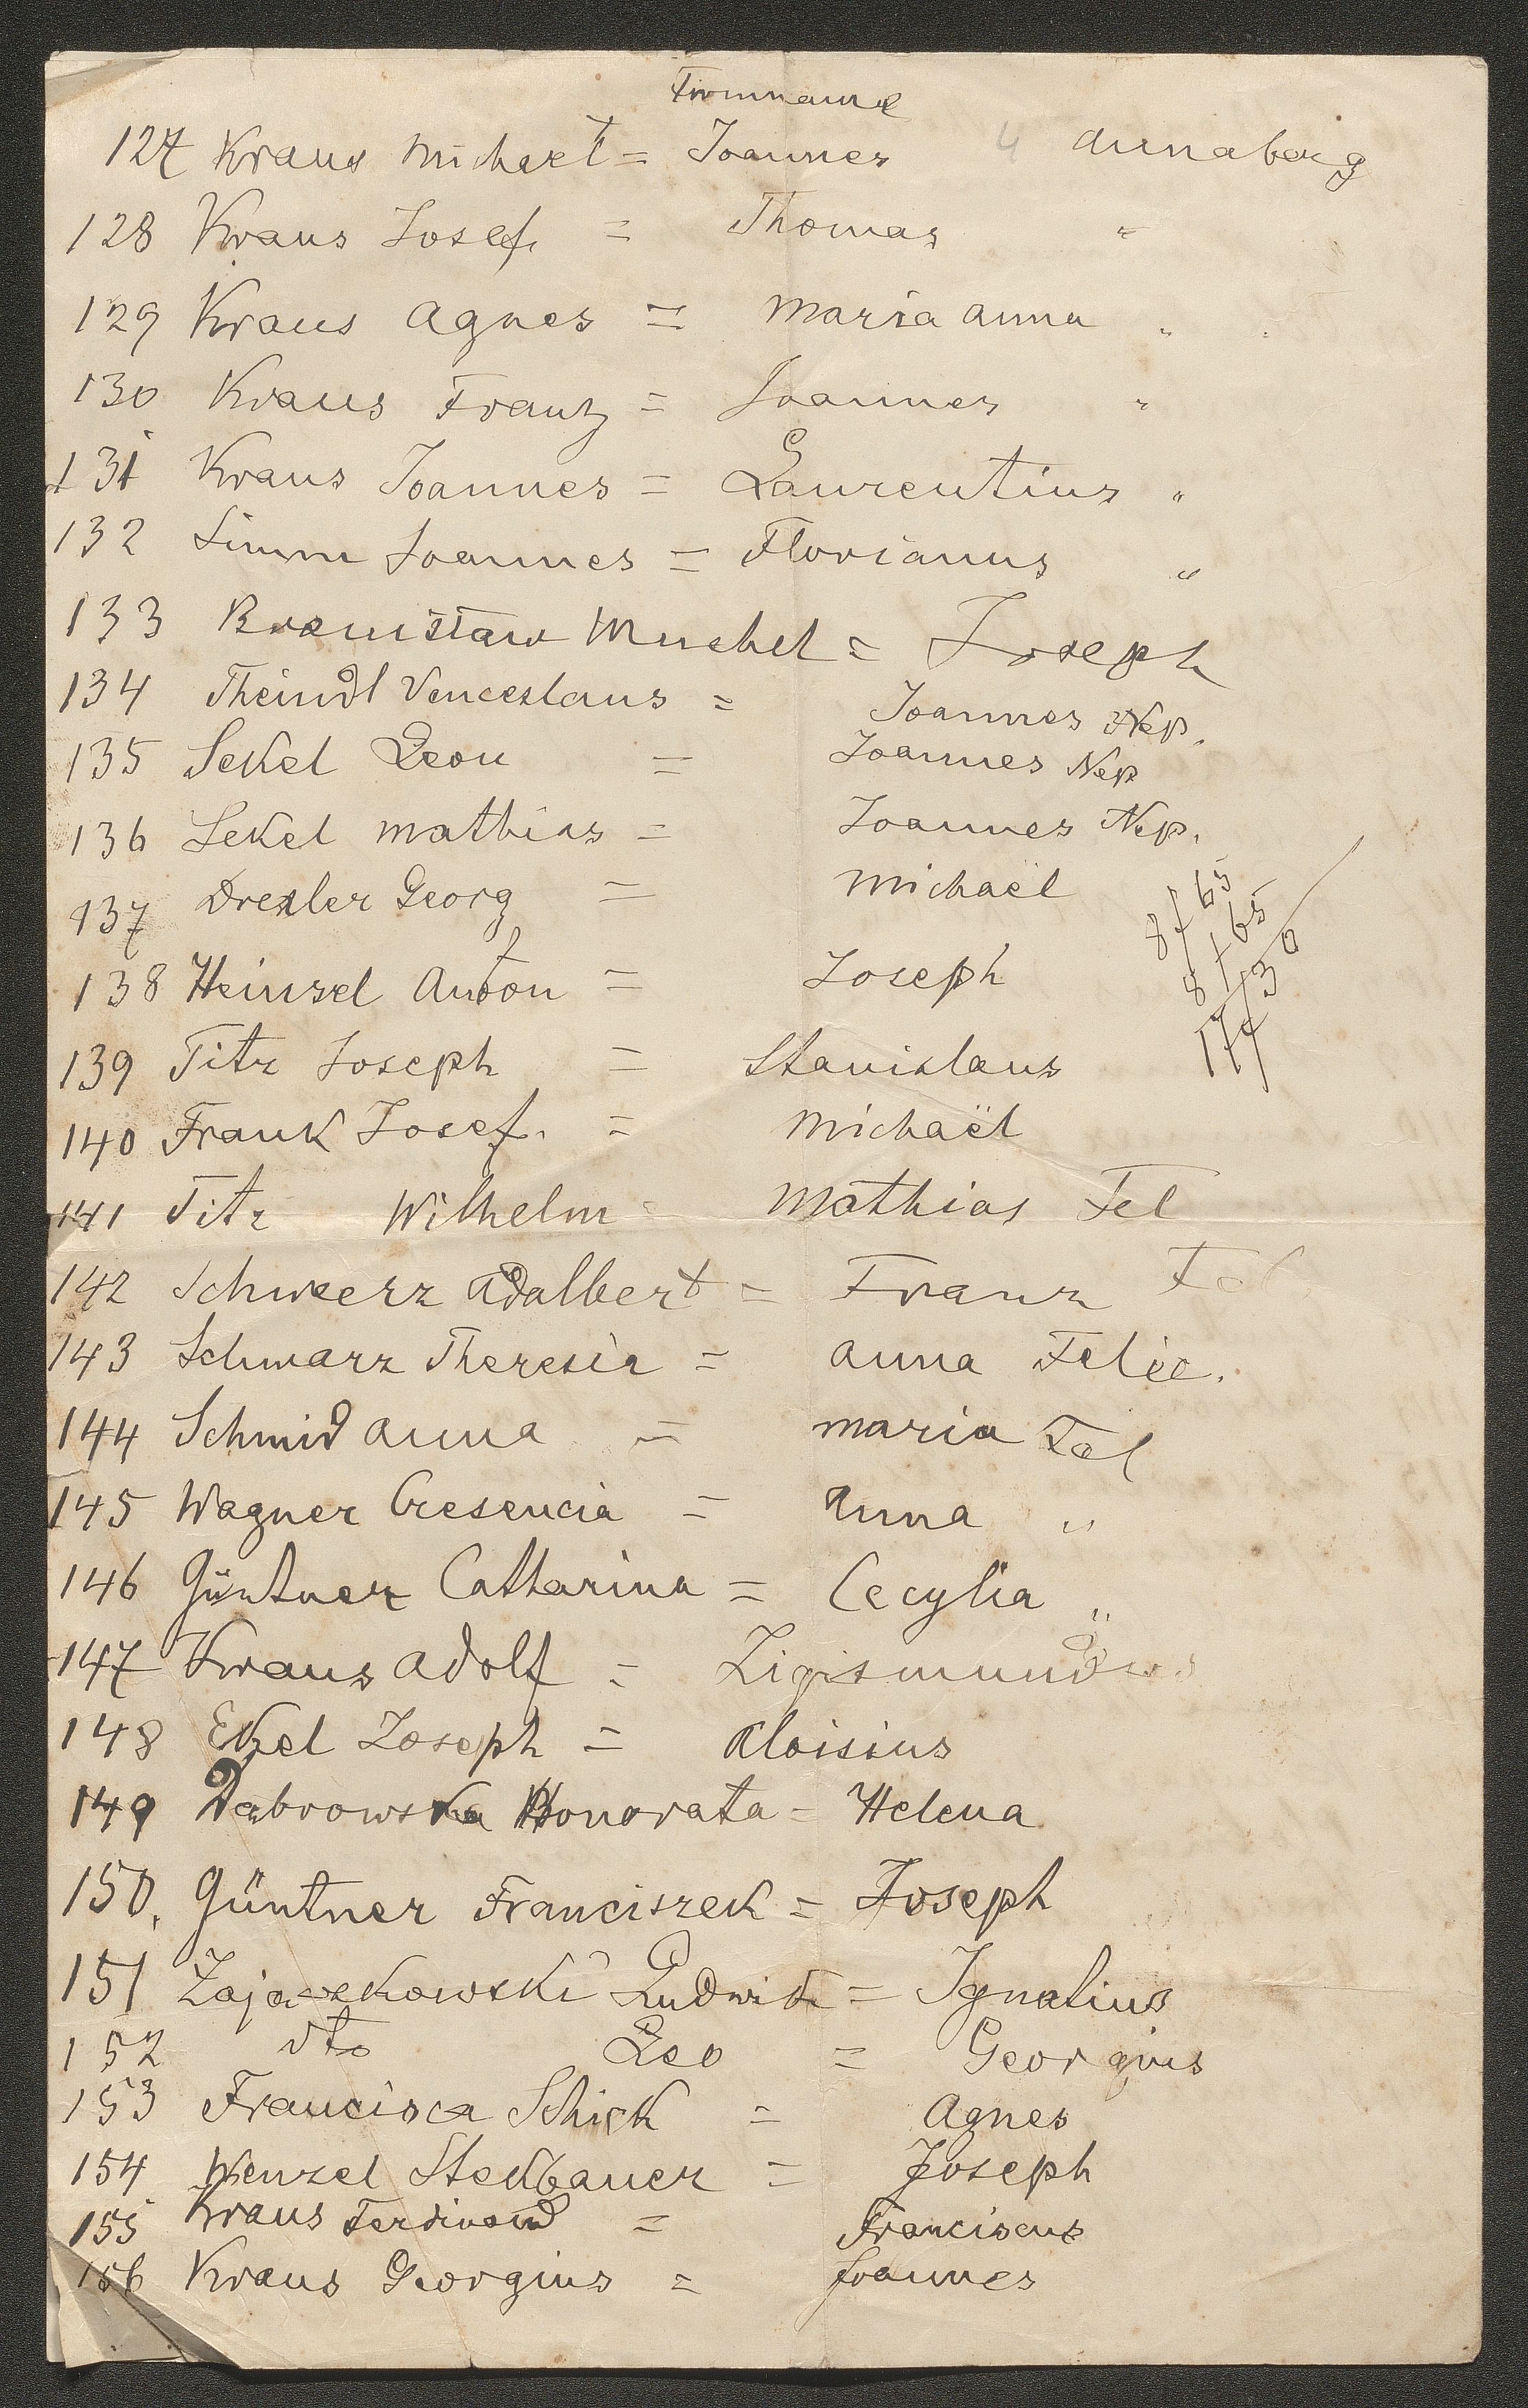 Firmname
127 Kraus Michael = Joannes 4 Annaberg
128 Kraus Josef. = Thomas "
129 Kraus Agnes = Maria Anna "
130 Kraus Franz = Joannes "
131 Kraus Joannes = Laurentius "
132 Simm Joannes = Florianus "
133 Bronisław Muchel = Joseph
134 Theindl Venceslaus = Joannes Nep.
135 Sekel Leon = Joannes Nep
136 Sekel Mathias = Joannes Nep.
137 Drexler Georg = Michaël
138 Heinzel Anton = Joseph
8/65
8/65
17/30
139 Titz Joseph = Stanislaus
140 Frank Josef. = Michaël
141 Titz Wilhelm = Mathias Fel
142 Schwarz Adalbert = Franz Fel
143 Schwarz Theresia = Anna Felic.
144 Schmid Anna = Maria Fel
145 Wagner Cresencia = Anna "
146 Güntner Catharina = Cecylia "
147 Kraus Adolf = Zigismundus
148 Ekel Joseph = Aloisius
149 Dabrowska Honorata = Helena
150, Güntner Franciszek = Joseph
151 Zajaczkowski Ludwik = Ignatius
152 dto Leo = Georgius
153 Francisca Schick = Agnes
154 Wenzel Stekbauer = Joseph
155 Kraus Ferdinand = Franciscus
156 Kraus Georgius = Joannes